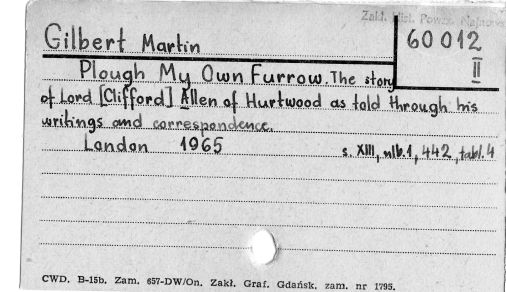 Zakł. Hist. Powsz. Najnows
Gilbert Martin
60 012
II
Plough My Own Furrow. The story
of Lord [Clifford] Allen of Hurtwood as told through his
writings and correspondence.
London 1965 s. XIII, nlb. 1, 442, tabl. 4
CWD. B-15b. Zam. 657-DW/On. Zakł. Graf. Gdańsk. zam. nr 1795.